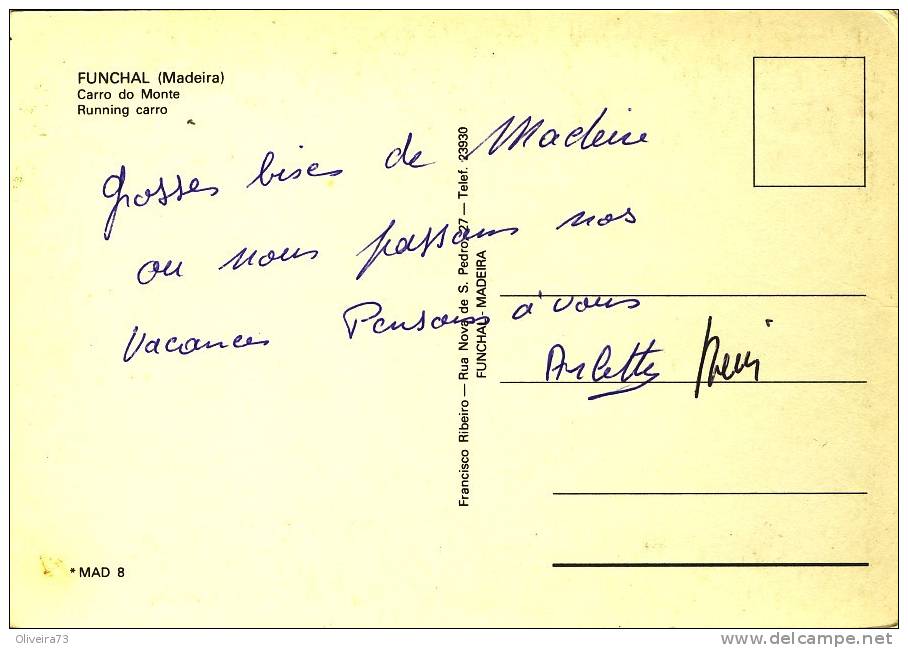 FUNCHAL (Madeira)
Carro do Monte
Running carro
Grosses bises de Madeire
ou nous passons nos
Vacances Pensons à vous
Arlette
Francisco Ribeiro — Rua Nova de S. Pedro, 27 — Telef. 23930
FUNCHAL - MADEIRA
* MAD 8
Oliveira73
delcampe.net